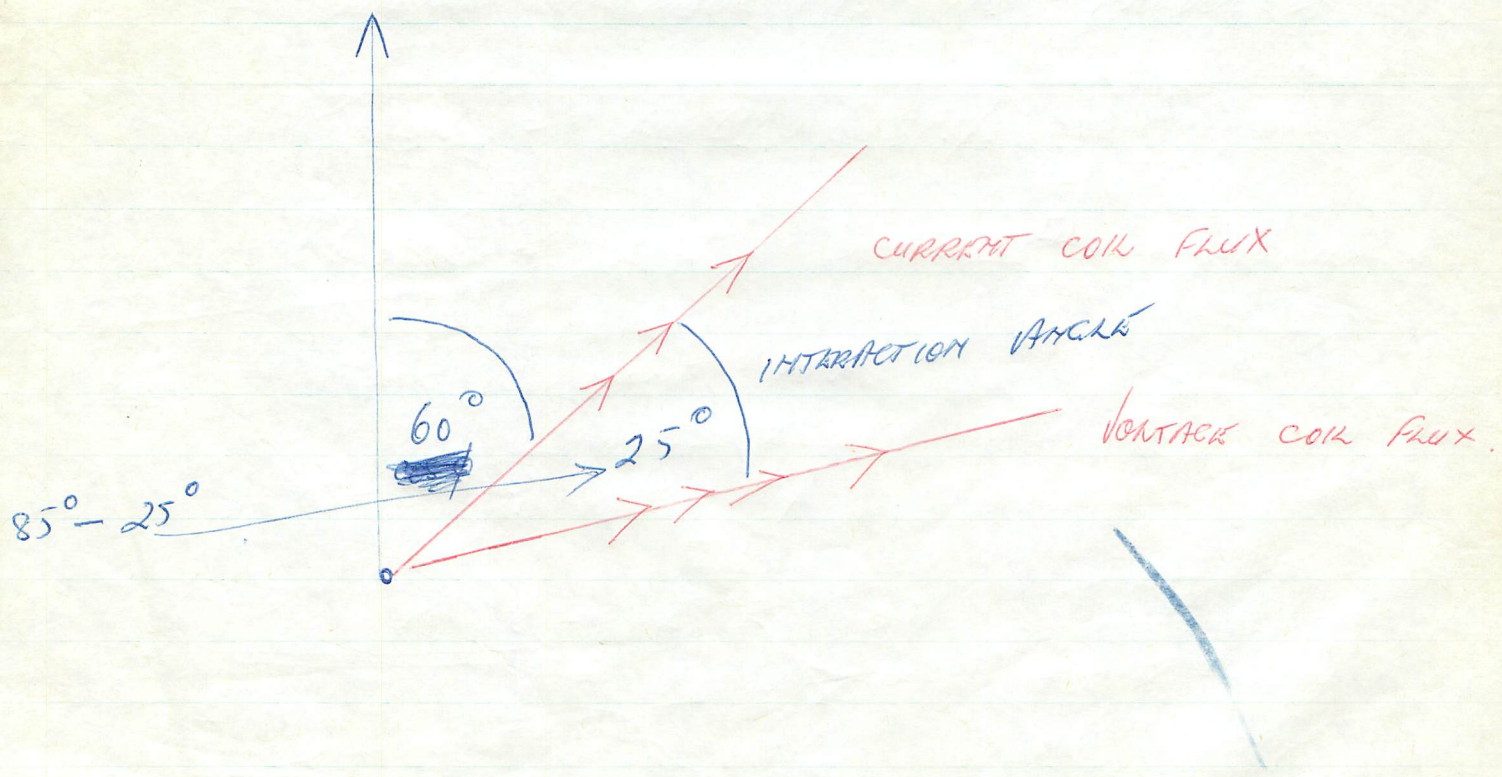 CURRENT COIL FLUX
INTERACTION ANGLE
60°
25°
VOLTAGE COIL FLUX.
85° - 25°